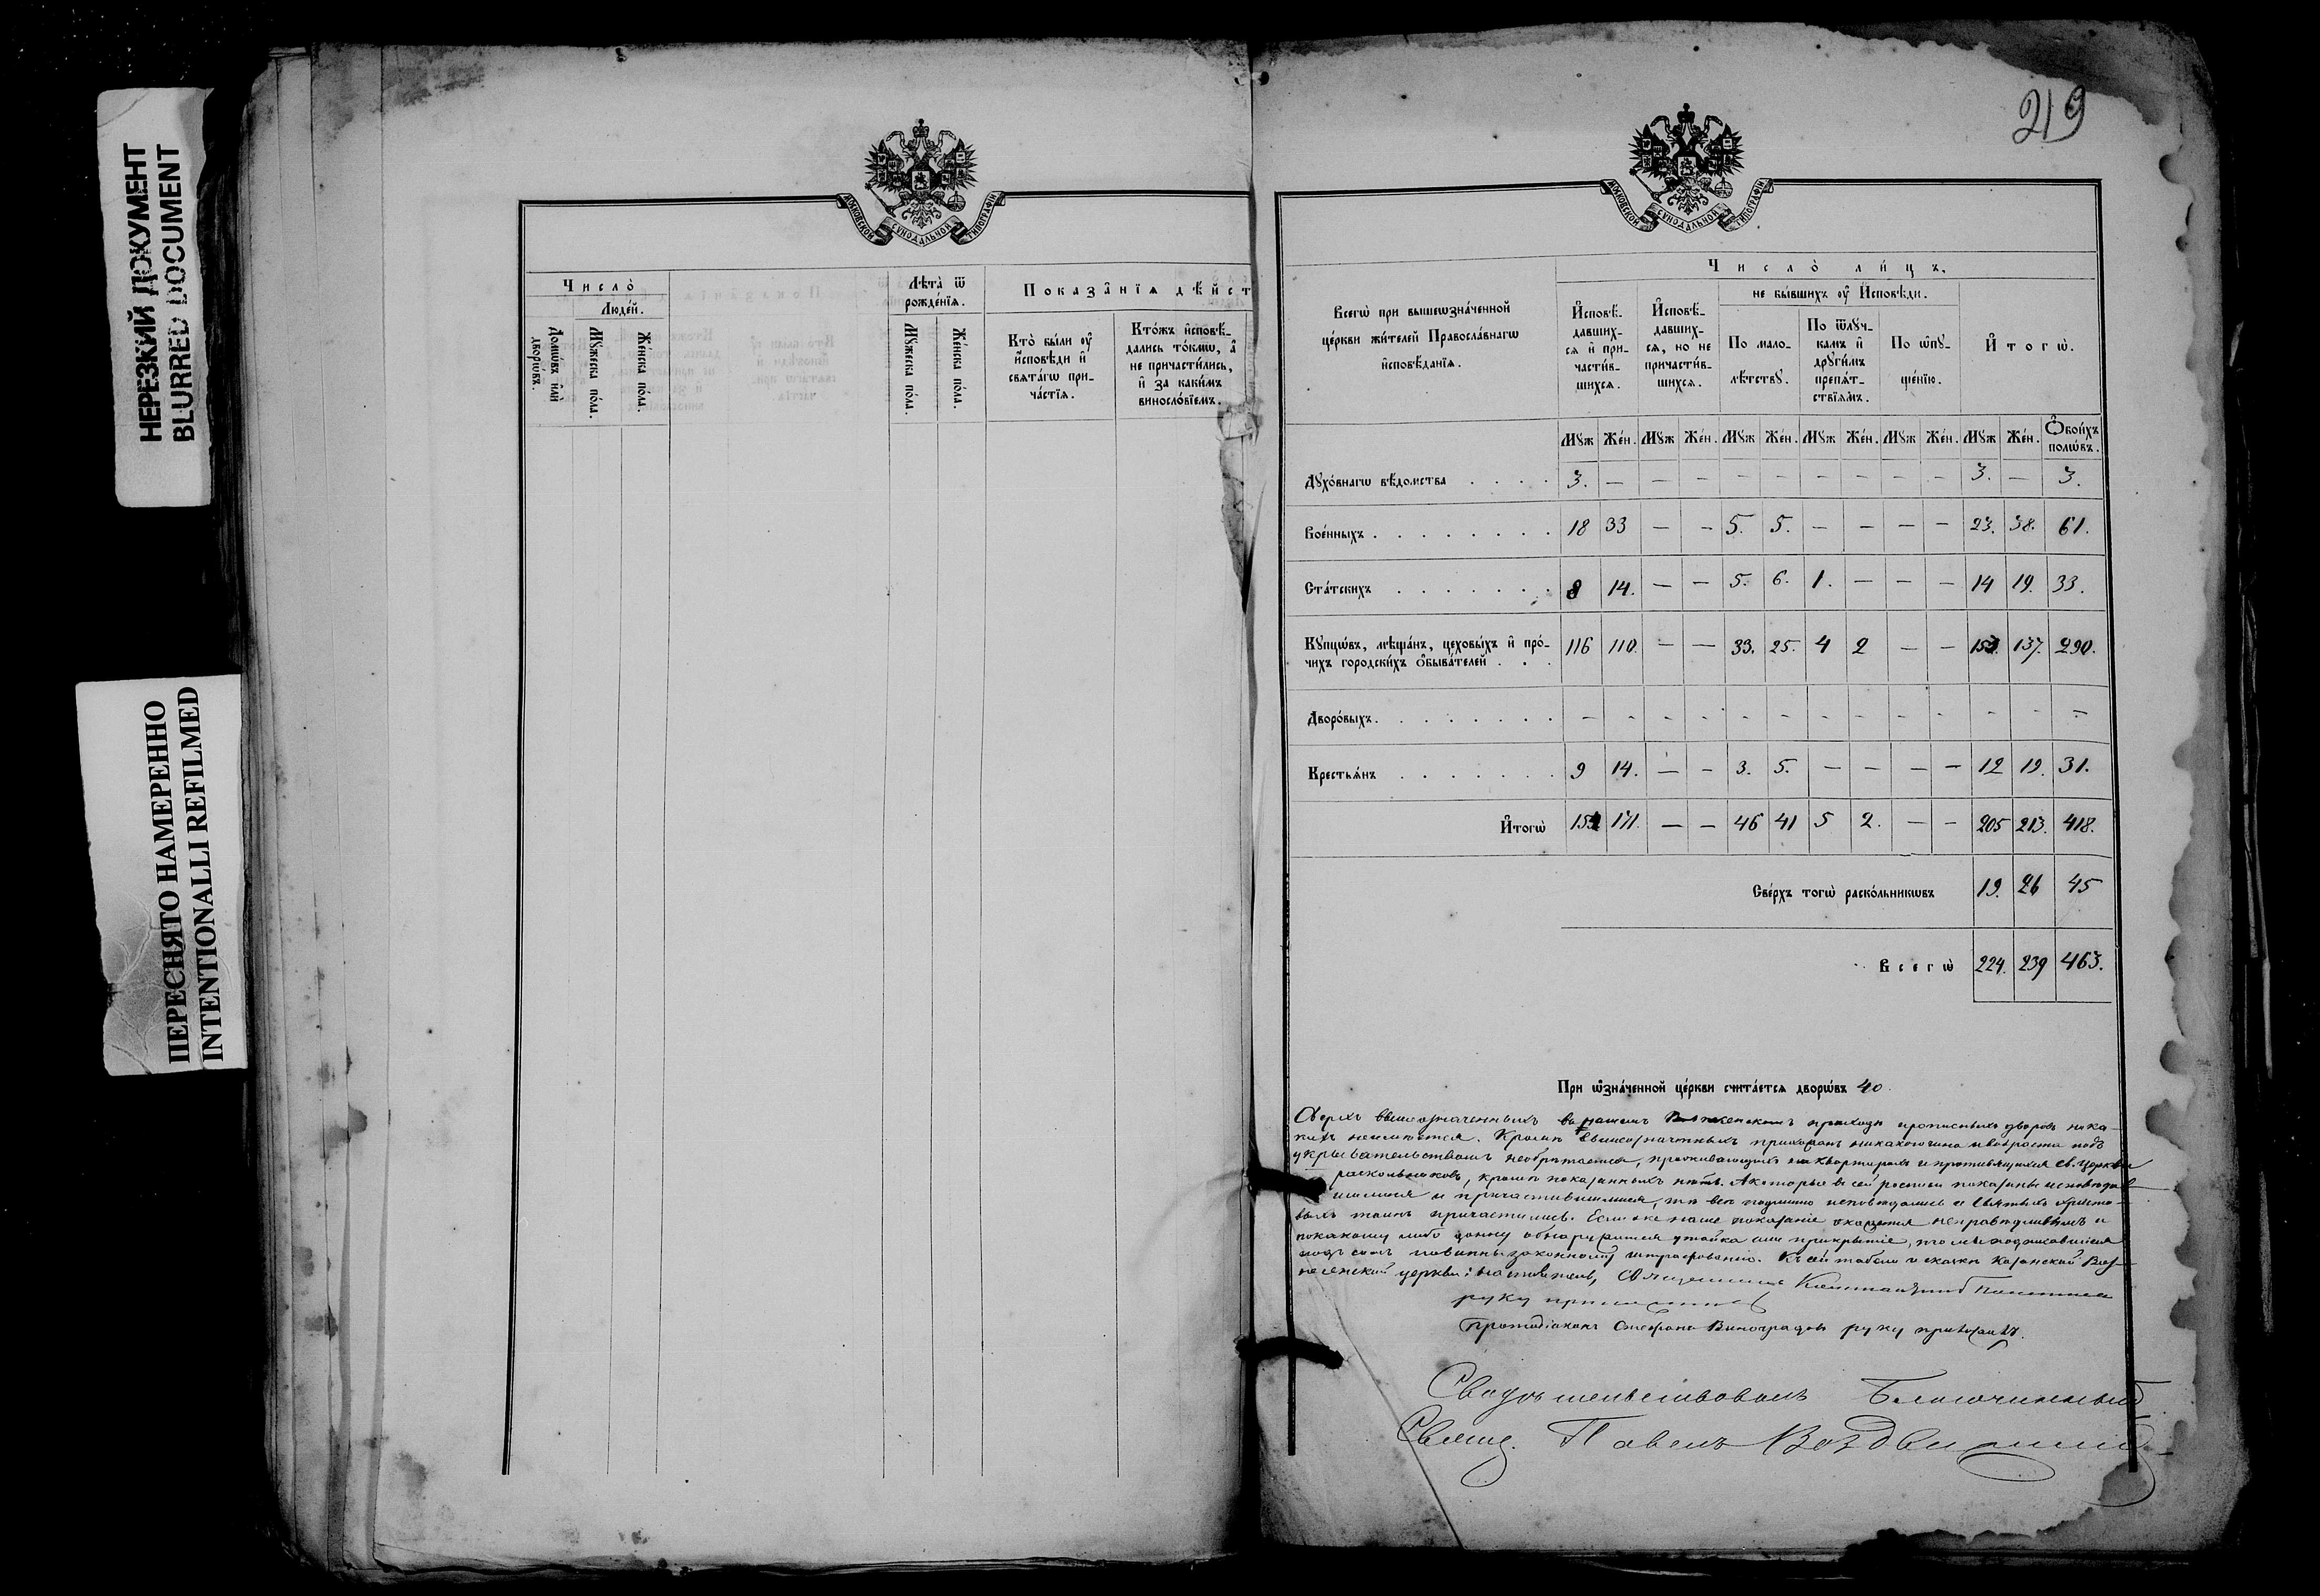 НЕРЕЗКИЙ ДОКУМЕНТ
BLURRED DOCUMENT
ПЕРЕСНЯТО НАМЕРЕННО
INTENTIONALLI REFILMED
МОСКОВСКОЙ СѴНОДАЛЬНОЙ ТИПОГРАФІИ
Число̀
Люде́й.
Домѡ́въ и҆лѝ дворѡ́въ.
Мꙋ́жеска по́ла.
Же́нска по́ла.
Лѣ́та ѿ рожде́нїѧ.
Мꙋ́жеска по́ла.
Же́нска по́ла.
Показа̑нїѧ дѣ́йст
Кто̀ бы́ли ᲂу҆ и҆сповѣ́ди и҆ свѧта́гѡ при-
ча́стїѧ.
Кто́жъ и҆сповѣ́-
дались то́кмѡ, а҆
не причасти́лись,
и҆ за каки́мъ
винослѡ́вїемъ.
219
МОСКОВСКОЙ СѴНОДАЛЬНОЙ ТИПОГРАФІИ
Всегѡ̀ при вышеѡзна́ченной
це́ркви жи́телей Правосла́внагѡ
и҆сповѣ́данїѧ.
Число̀ ли́цъ.
И҆сповѣ́-
давших-
сѧ и҆ при-
части́в-
шихсѧ.
И҆сповѣ́-
давших-
сѧ, но не
причасти́в-
шихсѧ.
не бы́вшихъ ᲂу҆ И҆сповѣ́ди.
По мало-
лѣ́тствꙋ.
По ѿлꙋ́ч-
камъ и҆
дрꙋги́мъ
препѧ́т-
ствїѧмъ.
По ѡ҆пꙋ-
ще́нїю.
И҆тогѡ̀.
Мꙋж Же́н. Мꙋж Же́н. Мꙋж Же́н. Мꙋж Же́н. Мꙋж Же́н. Мꙋж Же́н. Ѻ҆бои́хъ полѡ́въ.
Дꙋхо́внагѡ вѣ́домства . . . . 3. — — — — — — — — — 3. — 3.
Вое́нныхъ . . . . . . . . 18 33 — — 5. 5. — — — — 23. 38. 61.
Ста́тскихъ . . . . . . . 8 14. — — 5. 6. 1. — — — 14 19. 33.
Кꙋпцѡ́въ, мѣща́нъ, цеховы́хъ и҆ про́-
чихъ городски́хъ ѻ҆быва́телей . . . 116 110. — — 33. 25. 4 2 — — 153. 137. 290.
Дворо́выхъ. . . . . . . . — — — — — — — — — — — — —
Крестьѧ́нъ . . . . . . . 9 14. — — 3. 5. — — — — 12 19. 31.
И҆тогѡ̀ 154 171. — — 46 41 5 2. — — 205 213. 418.
Све́рхъ тогѡ̀ раско́льникѡвъ 19. 26 45
Всегѡ̀ 224. 239 463.
При ѡ҆зна́ченной це́ркви счита́етсѧ дворѡ́въ 40.
Сверхъ вышеозначенныхъ въ нашемъ приходѣ прописныхъ дворовъ ника-
кихъ неимѣется. Кромѣ вышеозначенныхъ прихожанъ никакого чина и возраста подъ
укрывательствомъ необрѣтается, проживающихъ на квартирахъ и противящихся св. Церкви
раскольниковъ, кромѣ показанныхъ нѣтъ. А которые въ сей росписи показаны исповѣдав-
шимися и причастившимися, тѣ всѣ подлинно исповѣдались и Святыхъ Христо-
выхъ таинъ причастились. Если же наше показаніе окажется несправедливымъ и
по какому либо доносу обнаружится утайка или прикрытіе, то мы подписавшіеся
подъ симъ повинны законному штрафованію. Къ сей табели и сказкѣ Казанской Воз-
несенской церкви: настоятель, Священникъ Константинъ
руку приложилъ
Протодіаконъ Стефанъ Виноградовъ руку приложилъ.
Свидѣтельствовалъ Благочинный
Свящ. Павелъ Воздвиженскій